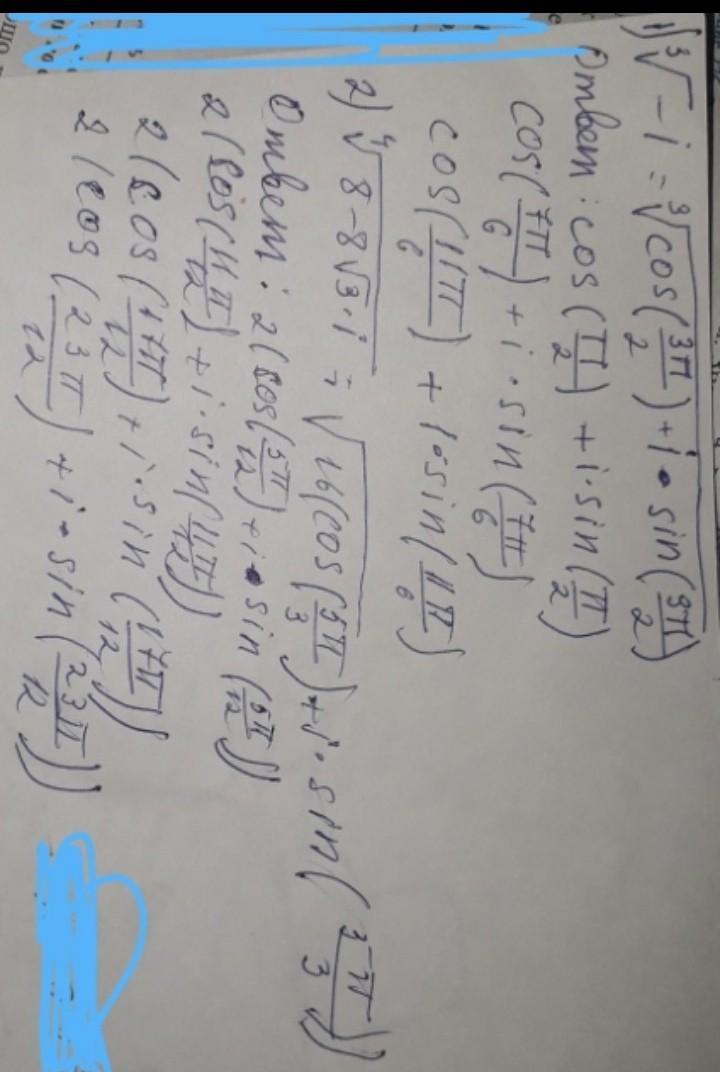 1) ∛-i = ∛cos(3π/2) + i • sin(3π/2)
Ответ: cos(π/2) + i · sin(π/2)
cos(7π/6) + i · sin(7π/6)
cos(11π/6) + i · sin(11π/6)
2) ∜8-8√3·i = √16(cos(5π/3) + i · sin(5π/3))
Ответ: 2(cos(5π/12) + i • sin(5π/12))
2(cos(11π/12) + i · sin(11π/12))
2(cos(17π/12) + i · sin(17π/12))
2(cos(23π/12) + i • sin(23π/12))